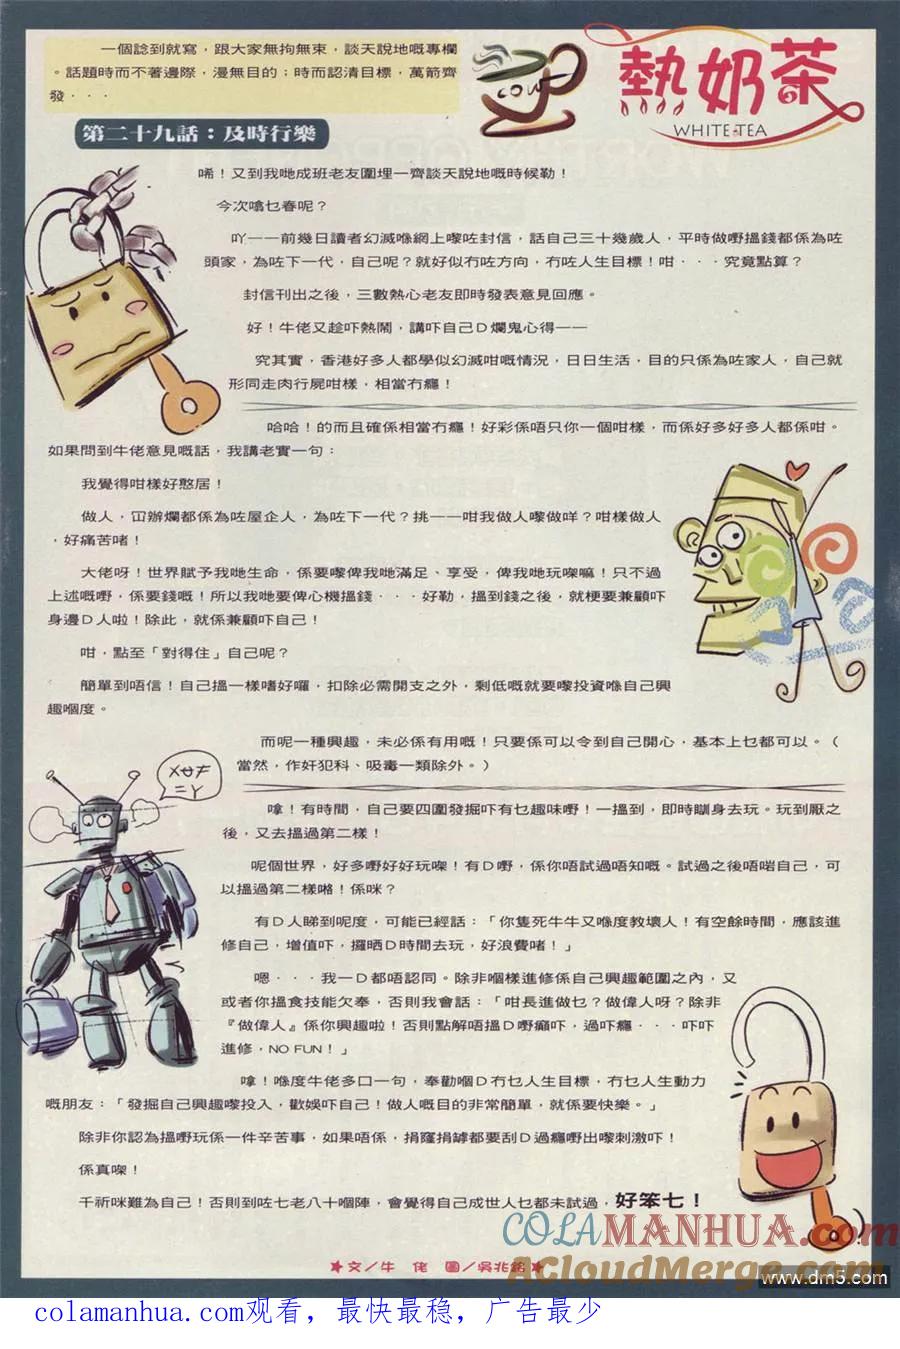 一個諗到就寫，跟大家無拘無束，談天說地嘅專欄
。話題時而不著邊際，漫無目的；時而認清目標，萬箭齊
發．．．
COW
熱奶茶
WHITE TEA
第二十九話：及時行樂
唏！又到我哋成班老友圍埋一齊談天說地嘅時候勒！
今次噏乜春呢？
吖——前幾日讀者幻滅喺網上嚟咗封信，話自己三十幾歲人，平時做嘢搵錢都係為咗
頭家，為咗下一代，自己呢？就好似冇咗方向，冇咗人生目標！咁．．．究竟點算？
封信刊出之後，三數熱心老友即時發表意見回應。
好！牛佬又趁吓熱鬧，講吓自己Ｄ爛鬼心得——
究其實，香港好多人都學似幻滅咁嘅情況，日日生活，目的只係為咗家人，自己就
形同走肉行屍咁樣，相當冇癮！
哈哈！的而且確係相當冇癮！好彩係唔只你一個咁樣，而係好多好多人都係咁。
如果問到牛佬意見嘅話，我講老實一句：
我覺得咁樣好憨居！
做人，冚辦爛都係為咗屋企人，為咗下一代？挑——咁我做人嚟做咩？咁樣做人
，好痛苦啫！
大佬呀！世界賦予我哋生命，係要嚟俾我哋滿足、享受，俾我哋玩㗎嘛！只不過
上述嘅嘢，係要錢嘅！所以我哋要俾心機搵錢．．．好勒，搵到錢之後，就梗要兼顧吓
身邊Ｄ人啦！除此，就係兼顧吓自己！
咁，點至「對得住」自己呢？
簡單到唔信！自己搵一樣嗜好囉，扣除必需開支之外，剩低嘅就要嚟投資喺自己興
趣嗰度。
而呢一種興趣，未必係有用嘅！只要係可以令到自己開心，基本上乜都可以。（
當然，作奸犯科、吸毒一類除外。）
嗱！有時間，自己要四圍發掘吓有乜趣味嘢！一搵到，即時瞓身去玩。玩到厭之
後，又去搵過第二樣！
呢個世界，好多嘢好好玩㗎！有Ｄ嘢，係你唔試過唔知嘅。試過之後唔啱自己，可
以搵過第二樣咯！係咪？
有Ｄ人睇到呢度，可能已經話：「你隻死牛牛又喺度教壞人！有空餘時間，應該進
修自己，增值吓，攞晒Ｄ時間去玩，好浪費啫！」
嗯．．．我一Ｄ都唔認同。除非嗰樣進修係自己興趣範圍之內，又
或者你搵食技能欠奉，否則我會話：「咁長進做乜？做偉人呀？除非
『做偉人』係你興趣啦！否則點解唔搵Ｄ嘢癲吓，過吓癮．．．吓吓
進修，NO FUN！」
嗱！喺度牛佬多口一句，奉勸嗰Ｄ冇乜人生目標，冇乜人生動力
嘅朋友：「發掘自己興趣嚟投入，歡娛吓自己！做人嘅目的非常簡單，就係要快樂。」
除非你認為搵嘢玩係一件辛苦事，如果唔係，捐窿捐罅都要刮Ｄ過癮嘢出嚟刺激吓！
係真㗎！
千祈咪難為自己！否則到咗七老八十嗰陣，會覺得自己成世人乜都未試過，好笨七！
★文／牛　佬　圖／吳兆銘★
COLAMANHUA.com
ACloudMerge.com
www.dm5.com
colamanhua.com观看，最快最稳，广告最少